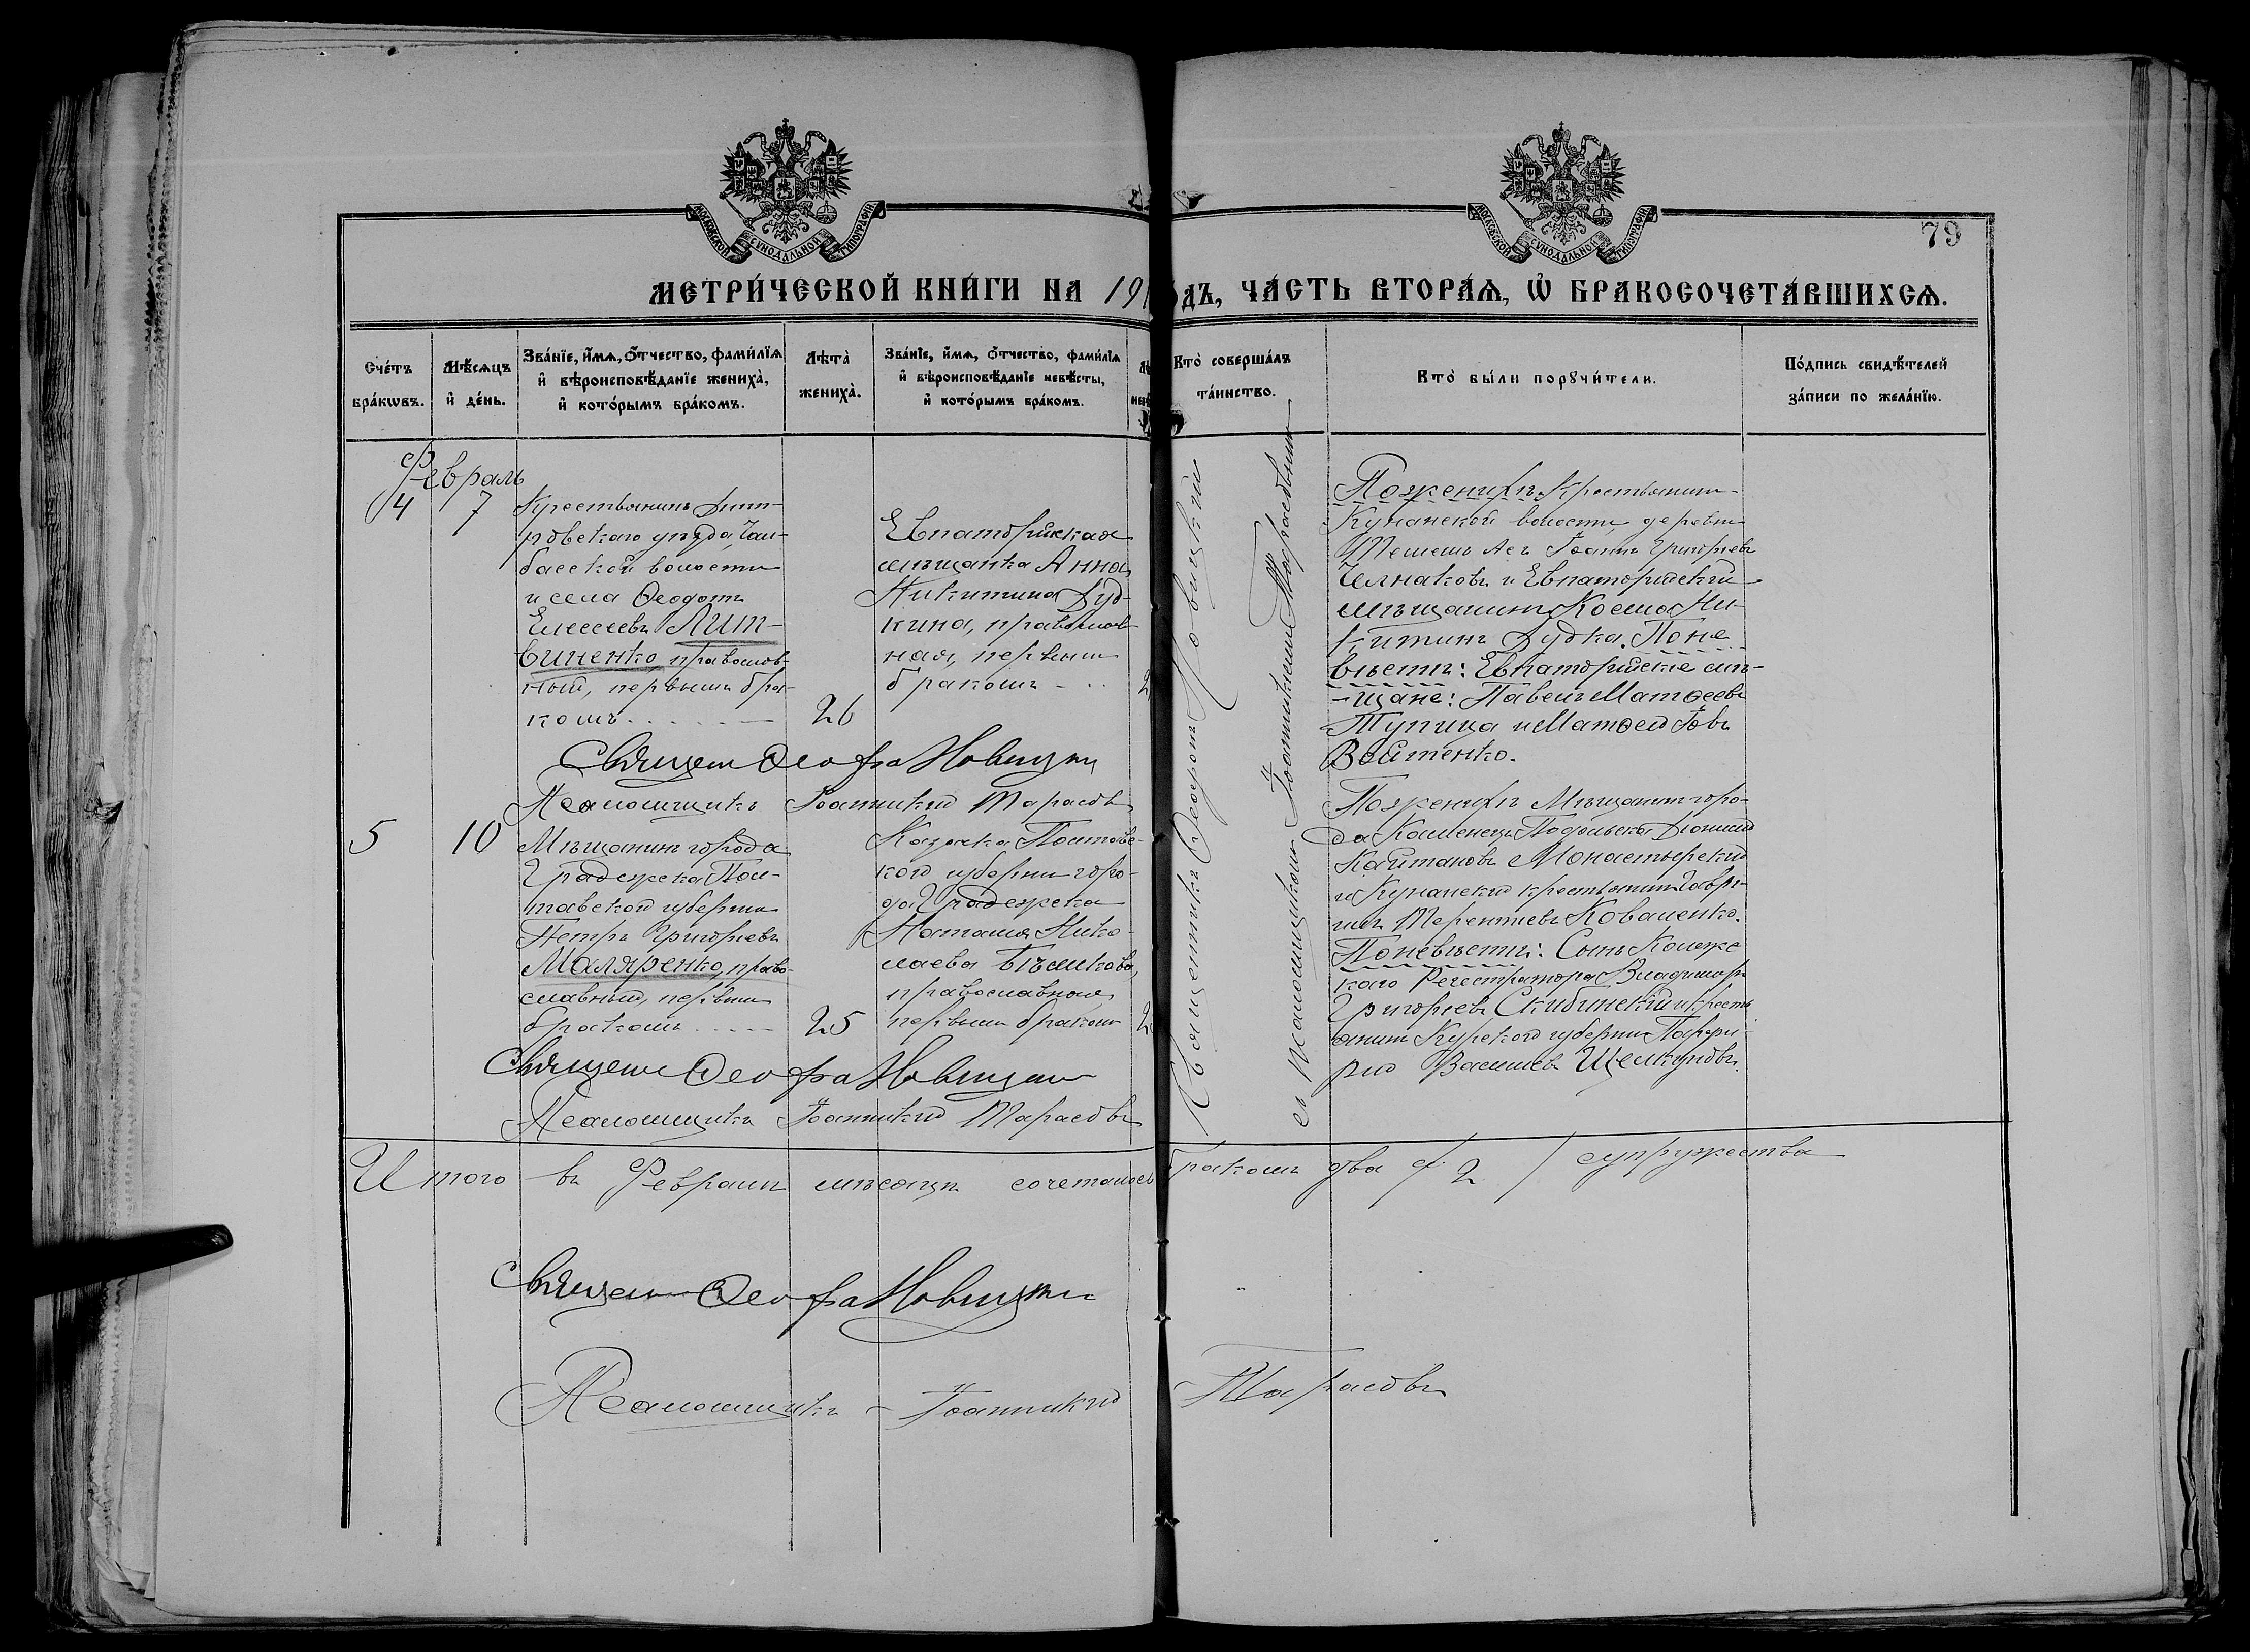 МОСКОВСКОЙ СѴНОДАЛЬНОЙ ТИПОГРАФІИ
МОСКОВСКОЙ СѴНОДАЛЬНОЙ ТИПОГРАФІИ
79
МЕТРИ́ЧЕСКОЙ КНИ́ГИ НА 191
ДЪ, ЧА́СТЬ ВТОРА́Ѧ, Ѡ҆ БРАКОСОЧЕТА́ВШИХСѦ.
Сче́тъ бра́кѡвъ.
Мѣ́сѧцъ и҆ де́нь.
Зва́нїе, и҆́мѧ, ѻ҆́тчество, фами́лїѧ
и҆ вѣроисповѣ́данїе жениха̀,
и҆ кото́рымъ бра́комъ.
Лѣта̀ жениха̀.
Зва́нїе, и҆́мѧ, ѻ҆́тчество, фами́лїѧ
и҆ вѣроисповѣ́данїе невѣ́сты,
и҆ кото́рымъ бра́комъ.
Кто̀ соверша́лъ
та́инство.
Кто̀ бы́ли порꙋчи́тели.
По́дпись свидѣ́телей
за́писи по жела́нїю.
Февраль
4
7
Крестьянинъ Днѣп-
ровскаго уѣзда, Чал-
басской волости
и села Ѳеодотъ
Елисеевъ Лит-
виненко, православ-
ный, первымъ бра-
комъ
26
Евпаторійская
мѣщанка Анна
Никитина Дуд-
кина, православ-
ная, первымъ
бракомъ
2
Священникъ Ѳеодоръ Новицкій
съ псаломщикомъ Іоанникіемъ Тарасовымъ
По женихѣ: Крестьянинъ
Кунанской волости, деревни
Іоаннъ Григорьевъ
Челнаковъ и Евпаторійскій
мѣщанинъ Косма Ни-
китинъ Дудка. По не
вѣстѣ: Евпаторійскіе мѣ-
щане: Павелъ Матѳеевъ
Тупица и Матѳей Іовъ
Войтенко.
Священ Ѳеодоръ Новицкій
Псаломщикъ Іоанникій Тарасовъ
5
10
Мѣщанинъ города
Градижска Пол-
тавской губерніи
Петръ Григорьевъ
Маляренко, право-
славный, первымъ
бракомъ
25
Казачка Полтавс-
кой губерніи горо-
да Градижска
Наталія Нико-
лаева Бѣликова,
православная,
первымъ бракомъ
2
По женихѣ Мѣщанинъ горо-
да Каменецъ Подольска Діонисій
Кайтановъ Монастырскій
и Кунанскій крестьянинъ Гаврі-
илъ Терентіевъ Коваленко.
По невѣстѣ: Сынъ Коллеж
каго Регистратора Владиміръ
Григорьевъ Скибинскій и кресть
янинъ Курской губерніи Парфи-
рій Васильевъ Щелкуновъ.
Священ Ѳеодоръ Новицкій
Псаломщикъ Іоанникій Тарасовъ
Итого въ Февралѣ мѣсяцѣ сочеталось бракомъ два / 2 / супружества
Священ Ѳеодоръ Новицкій
Псаломщикъ - Іоанникій Тарасовъ